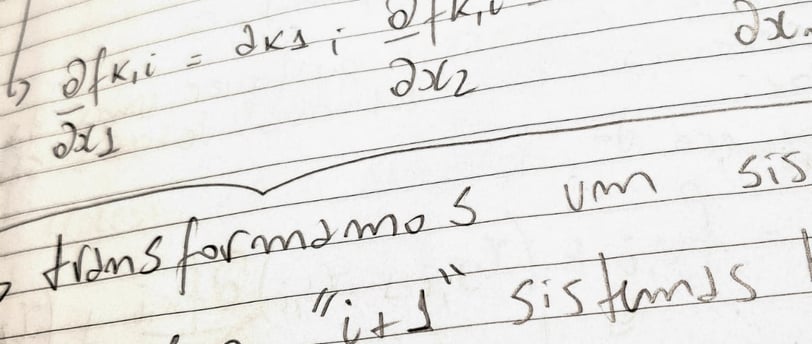 ∂fk,i = ak1 ; ∂fk,i
∂x1 ∂x2 ∂x
transformamos um sis
"i+1" sistemas